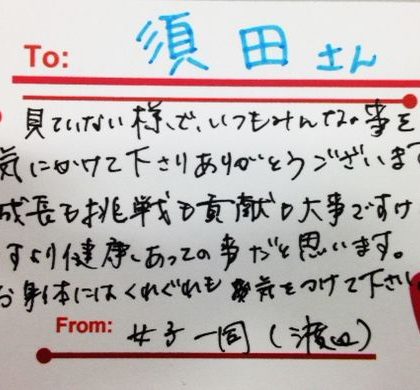 To: 須田さん
見ていない様で、いつもみんなの事を
気にかけて下さりありがとうございます
成長も挑戦も貢献も大事ですけ
すより健康あっての事だと思います。
お身体にはくれぐれも気をつけて下さい
From: 女子一同(濱田)